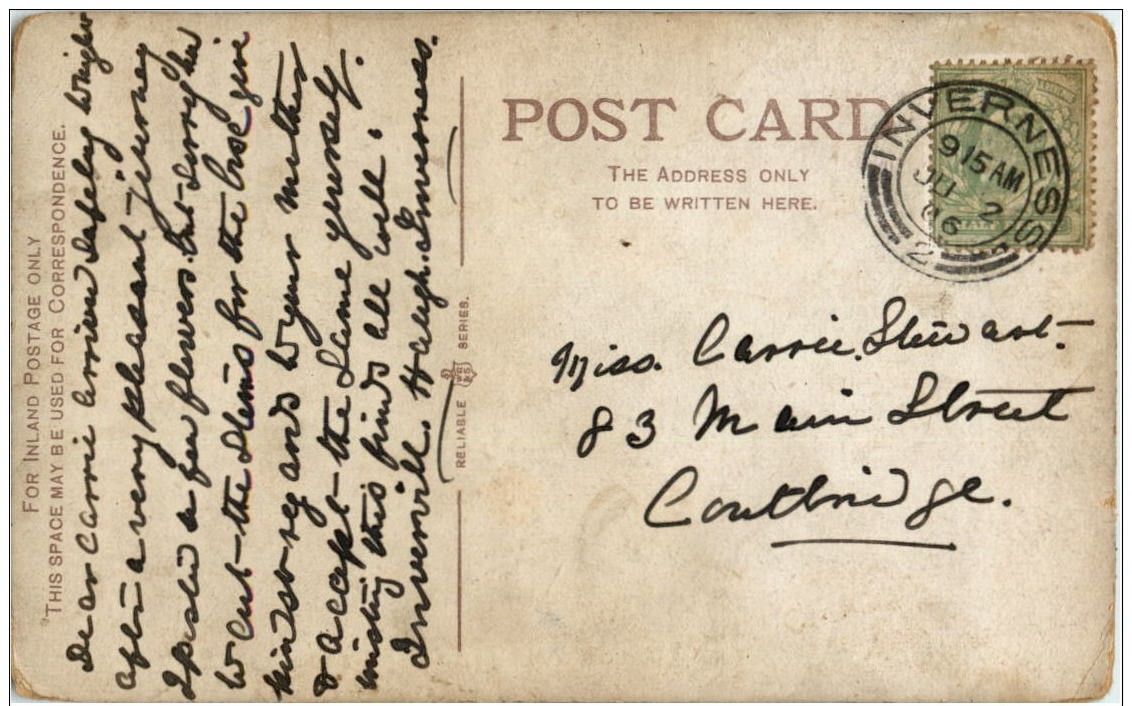 FOR INLAND POSTAGE ONLY
THIS SPACE MAY BE USED FOR CORRESPONDENCE.
Dear Carrie Arrived Safely
after a very pleasant journey
I posted a few flowers. but sorry
to cut the Stems for the box give
kindest regards to your mother
& accept the Same yourself.
this finds all well.
Haugh. Inverness.
RELIABLE SERIES.
POST CARD
THE ADDRESS ONLY
TO BE WRITTEN HERE.
INVERNESS
9 15 AM
2
06
2
HALF
Miss. Carrie. Stewart.
83 Main Street
Coatbridge.